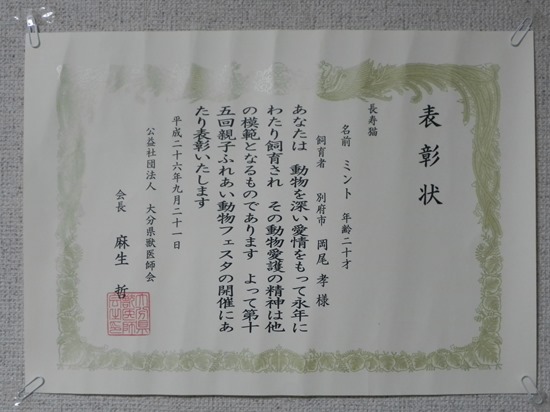 表彰状
長寿猫
名前 ミント 年齢二十才
飼育者 別府市 岡尾 孝 様
あなたは 動物を深い愛情をもって永年に
わたり飼育され その動物愛護の精神は他
の模範となるものであります よって第十
五回親子ふれあい動物フェスタの開催にあ
たり表彰いたします
平成二十六年九月二十一日
公益社団法人 大分県獣医師会
会長 麻生 哲